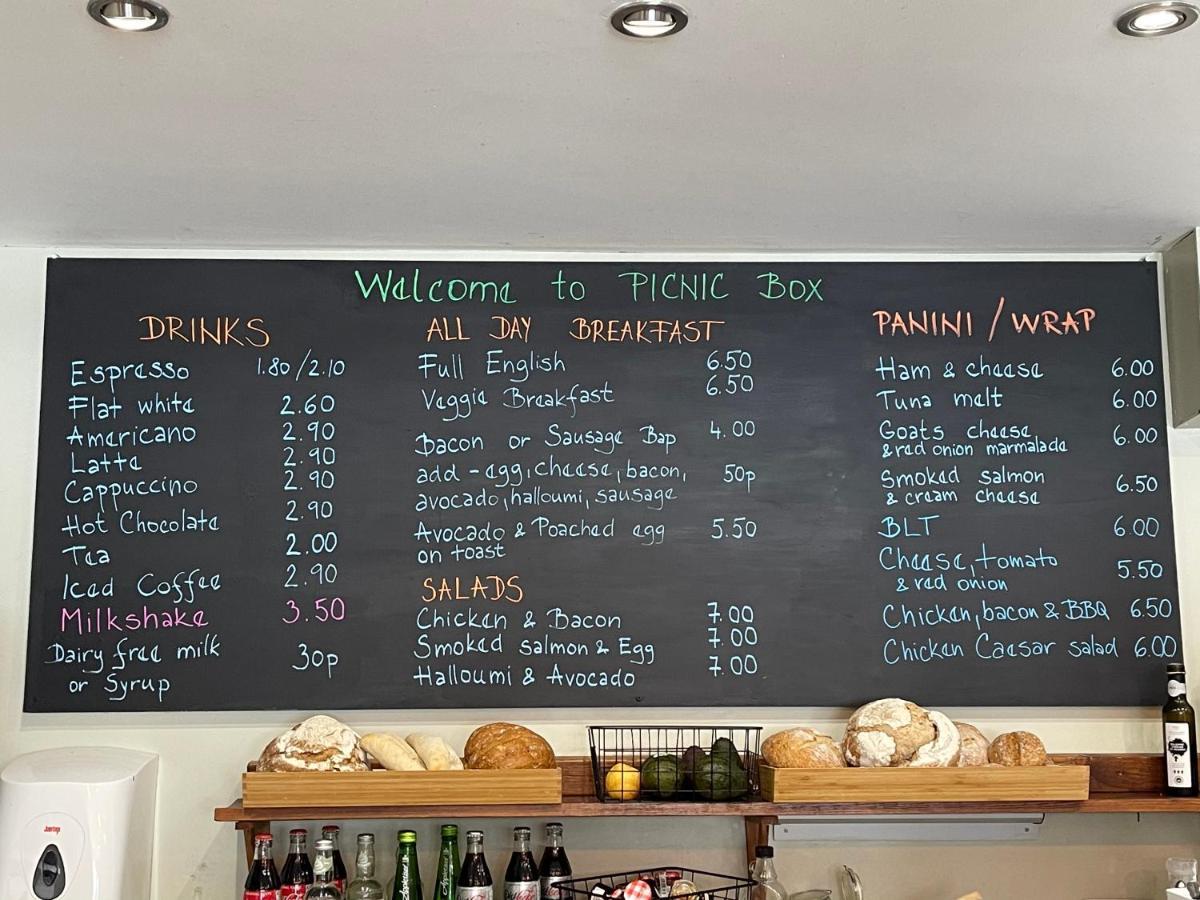 Welcome to PICNIC BOX
DRINKS
Espresso 1.80/2.10
Flat white 2.60
Americano 2.90
Latte 2.90
Cappuccino 2.90
Hot Chocolate 2.90
Tea 2.00
Iced Coffee 2.90
Milkshake 3.50
Dairy free milk 30p
or Syrup
ALL DAY BREAKFAST
Full English 6.50
Veggie Breakfast 6.50
Bacon or Sausage Bap 4.00
add - egg, cheese, bacon, 50p
avocado, halloumi, sausage
Avocado & Poached egg 5.50
on toast
SALADS
Chicken & Bacon 7.00
Smoked salmon & Egg 7.00
Halloumi & Avocado 7.00
PANINI / WRAP
Ham & cheese 6.00
Tuna melt 6.00
Goats cheese 6.00
& red onion marmalade
Smoked salmon 6.50
& cream cheese
BLT 6.00
Cheese, tomato 5.50
& red onion
Chicken, bacon & BBQ 6.50
Chicken Caesar salad 6.00